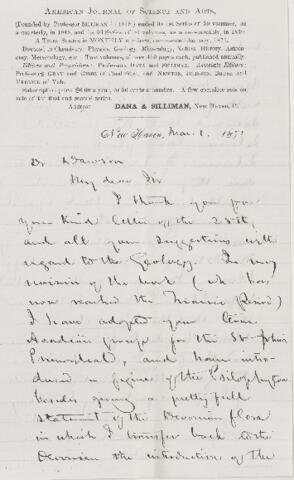 AMERICAN JOURNAL OF SCIENCE AND ARTS,
[Founded by Professor SILLIMAN in 1818,] ended its 1st Series of 50 volumes, as
a quarterly, in 1845, and its 2d Series of 50 volumes, as a two-monthly, in 1870.
A THIRD SERIES in MONTHLY numbers, commenced January, 1871.
Devoted to Chemistry, Physics, Geology, Mineralogy, Natural History, Astronomy,
Meteorology, etc. Two volumes, of over 450 pages each, published annually.
Editors and Proprietors: Professors DANA and SILLIMAN. Associate Editors:
Professors GRAY and GIBBS of Cambridge, and NEWTON, JOHNSON, BRUSH and
VERRILL of Yale.
Subscription price $6.00 a year, or 50 cents a number. A few complete sets on
sale of the first and second series.
Address DANA & SILLIMAN, New Haven, Ct.
New Haven, Mar. 1, 187
Dr Dawson
My dear Sir
I thank you for
your kind letter of the 25th,
and all your suggestions with
regard to the Geology. In my
revision of the book (wh. has
now reached the Triassic Period)
I have adopted your term
Acadian group for the St. John
Primordial, and have intro-
duced a figure of the Psilophyton
besides giving a pretty full
statement of the Devonian flora
in which I transfer back to the
Devonian the introduction of the